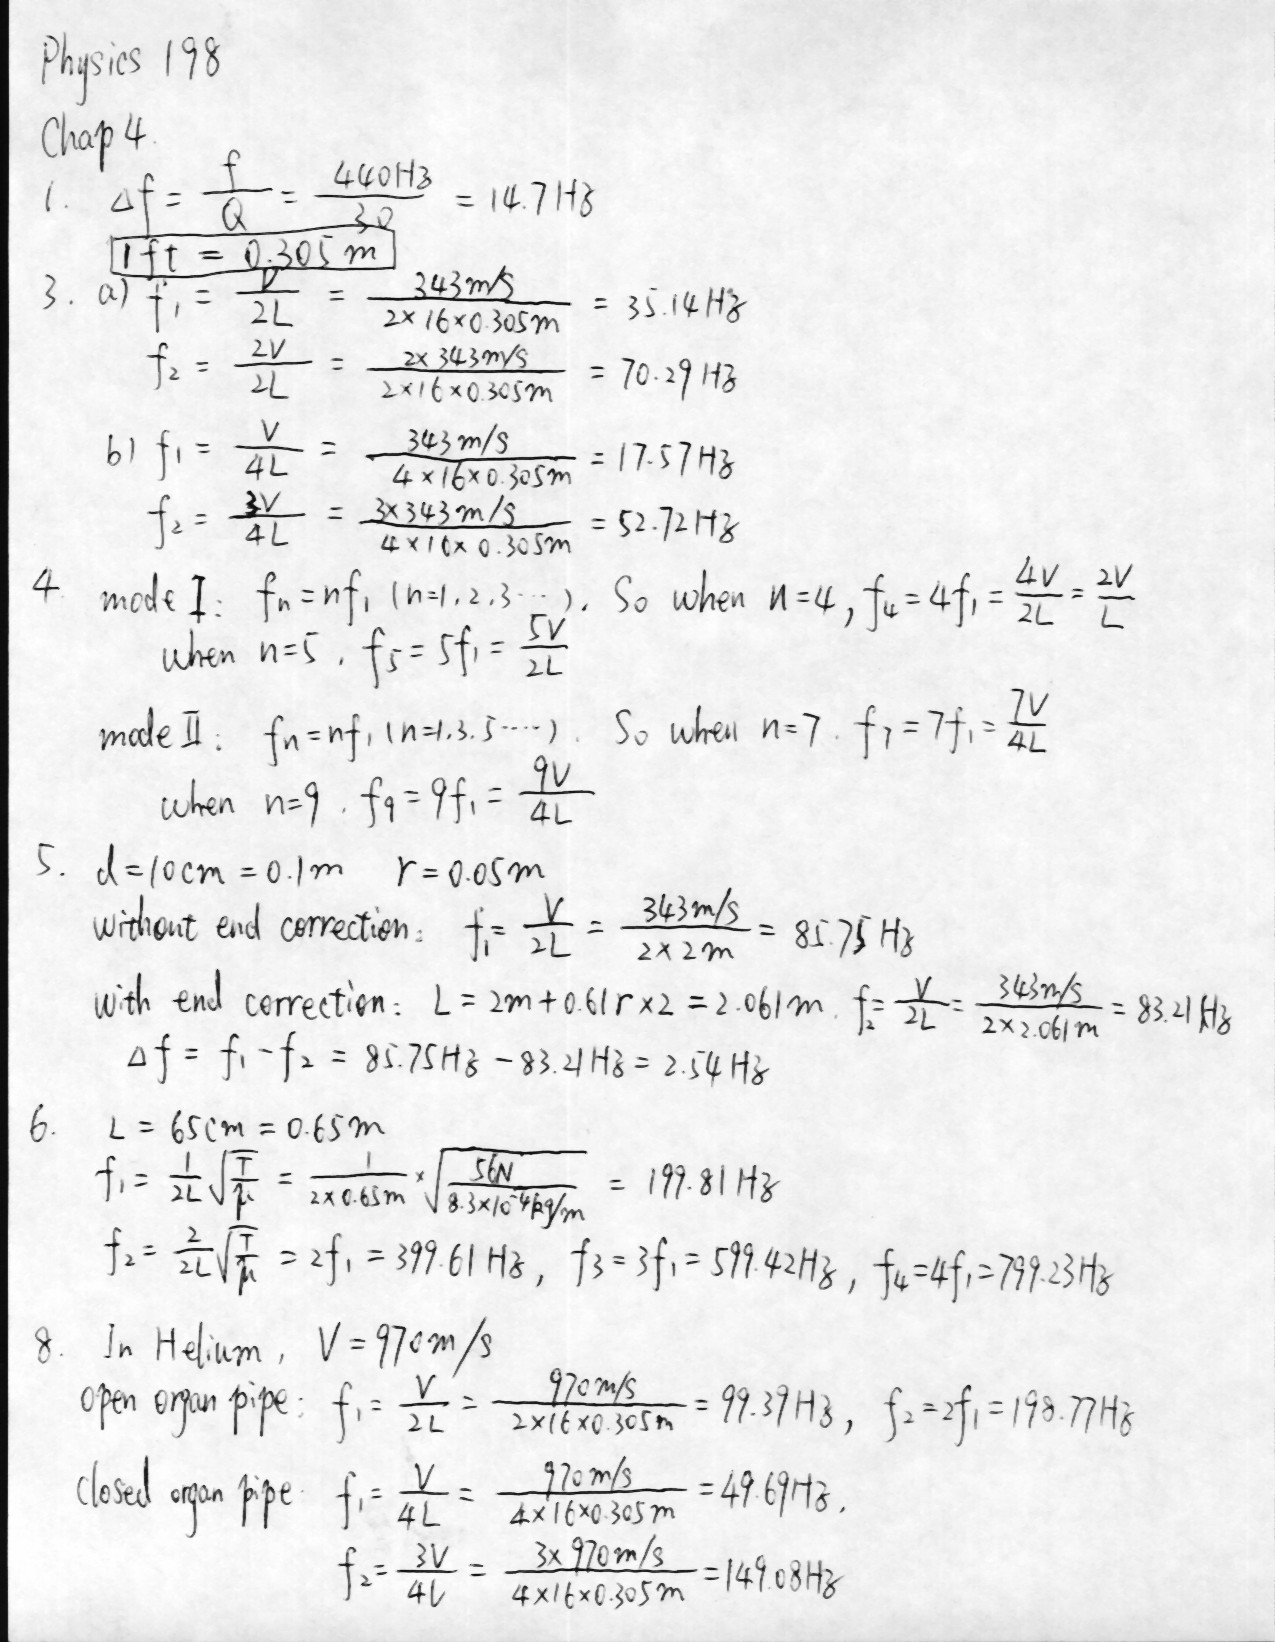 Physics 198
Chap 4.
1. Δf = f/Q = 440Hz/30 = 14.7 Hz
1 ft = 0.305 m
3. a) f₁ = V/2L = 343m/s / 2×16×0.305m = 35.14 Hz
f₂ = 2V/2L = 2×343m/s / 2×16×0.305m = 70.29 Hz
b) f₁ = V/4L = 343m/s / 4×16×0.305m = 17.57 Hz
f₂ = 3V/4L = 3×343m/s / 4×16×0.305m = 52.72 Hz
4 mode I: fn = nf₁ (n=1,2,3···). So when n=4, f₄ = 4f₁ = 4V/2L = 2V/L
when n=5, f₅ = 5f₁ = 5V/2L
mode II: fn = nf₁ (n=1.3.5····). So when n=7. f₇ = 7f₁ = 7V/4L
when n=9. f₉ = 9f₁ = 9V/4L
5. d = 10cm = 0.1m r = 0.05m
without end correction: f₁ = V/2L = 343m/s / 2×2m = 85.75 Hz
with end correction: L = 2m+0.61r×2 = 2.061m. f₂ = V/2L = 343m/s / 2×2.061m = 83.21 Hz
Δf = f₁ - f₂ = 85.75Hz - 83.21Hz = 2.54 Hz
6. L = 65cm = 0.65m
f₁ = 1/2L √T/μ = 1/2×0.65m × √56N / 8.3×10⁻⁴kg/m = 199.81 Hz
f₂ = 2/2L √T/μ = 2f₁ = 399.61 Hz, f₃ = 3f₁ = 599.42Hz, f₄=4f₁=799.23Hz
8. In Helium, V = 970m/s
open organ pipe: f₁ = V/2L = 970m/s / 2×16×0.305m = 99.39Hz, f₂=2f₁=198.77Hz
closed organ pipe f₁ = V/4L = 970m/s / 4×16×0.305m = 49.69Hz.
f₂ = 3V/4L = 3×970m/s / 4×16×0.305m = 149.08Hz